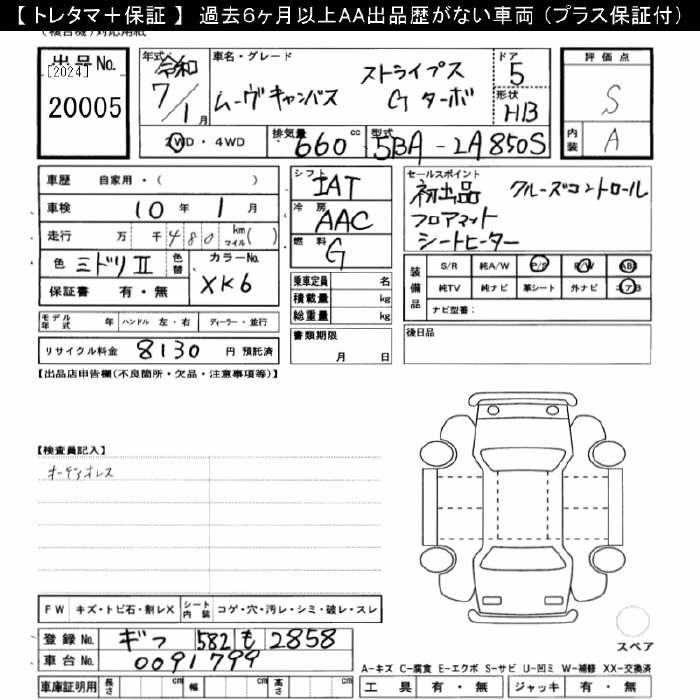 【 トレタマ＋保証 】 過去６ヶ月以上AA出品歴がない車両（プラス保証付）
(複合機)対応用紙
出品No.
[2024]
20005
年式 令和 7/1月
車名・グレード
ムーヴキャンバス ストライプス Gターボ
ドア 5
形状 HB
2WD・4WD
排気量 660 cc
型式 5BA-LA850S
評価点
S
内装 A
車歴 自家用・( )
車検 10年 1月
走行 万 千 480 km マイル( )
色 ミドリII 色替 カラーNo. XK6
保証書 有・無
シフト IAT
冷房 AAC
燃料 G
乗車定員 名
積載量 kg
総重量 kg
書類期限
月 日
セールスポイント
初出品 クルーズコントロール
フロアマット
シートヒーター
装備品
S/R 純A/W P/S P/W ABS
純TV 純ナビ 革シート 外ナビ エアB
ナビ型番:
後日品
モデル年式 年 ハンドル 左・右 ディーラー・並行
リサイクル料金 8130 円 預託済
【出品店申告欄(不良箇所・欠品・注意事項等)】
【検査員記入】
オーディオレス
FW キズ・トビ石・割レX シート内装 コゲ・穴・汚レ・シミ・破レ・スレ
登録No. ギフ 582 も 2858
車台No. 0091799
車庫証明用 長さ cm 幅 cm 高さ cm
スペア
A-キズ C-腐食 E-エクボ S-サビ U-凹ミ W-補修 XX-交換済
工具 有・無 ジャッキ 有・無